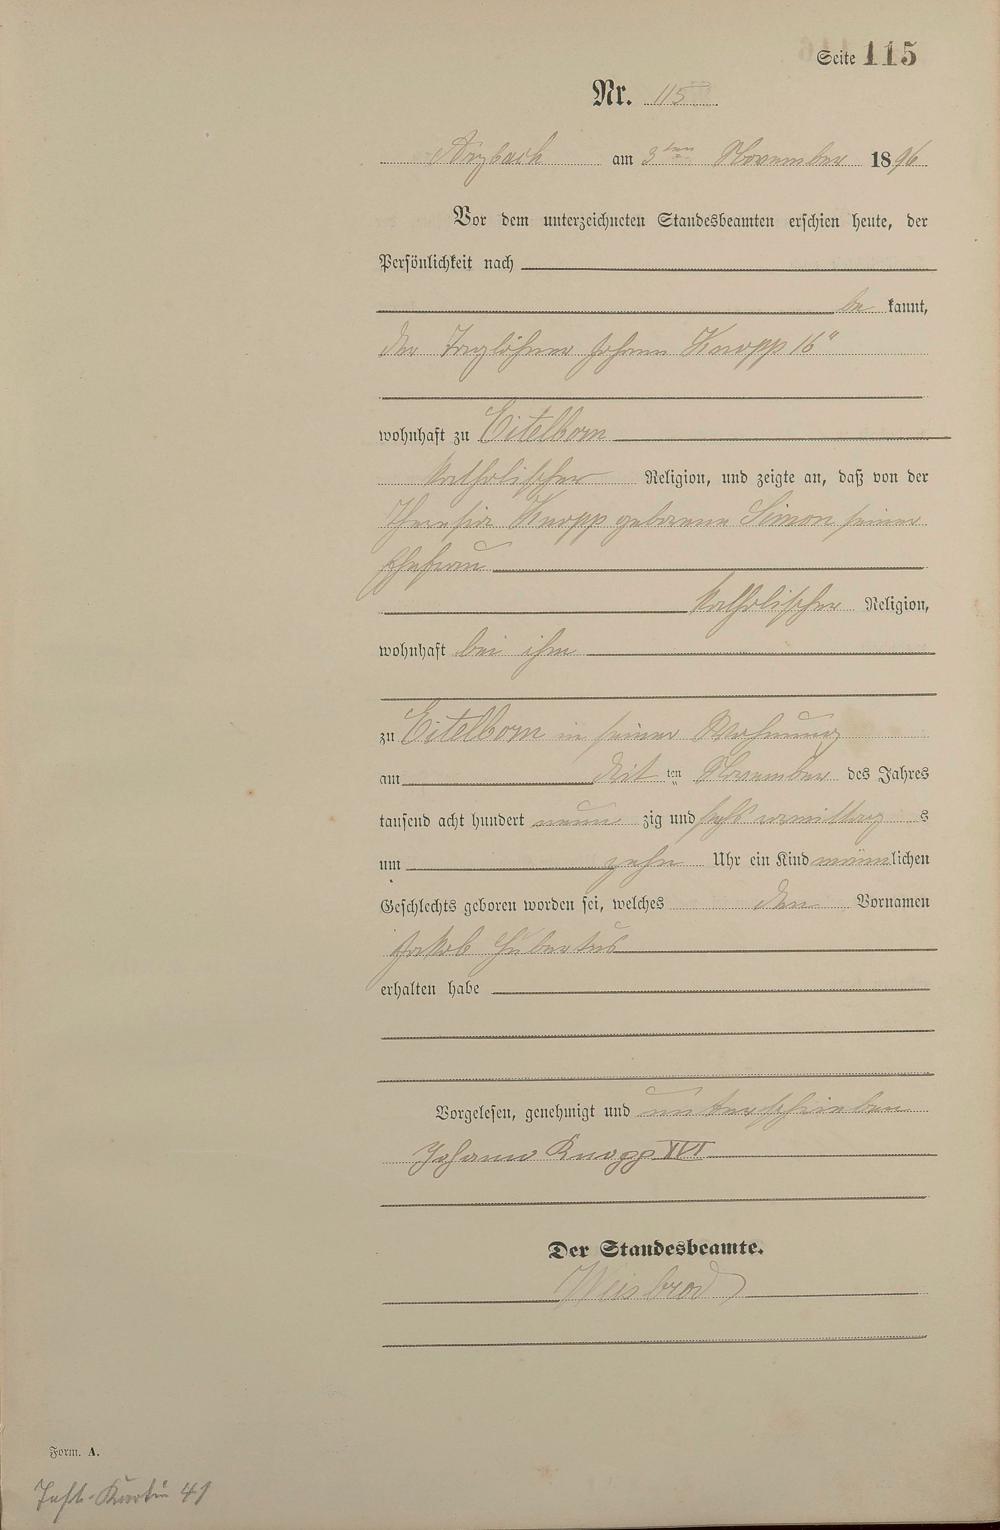 Seite 115
Nr. 115
Arzbach am 3ten November 1896
Vor dem unterzeichneten Standesbeamten erschien heute, der
Persönlichkeit nach
be kannt,
der Taglöhner Johann Knopp 16"
wohnhaft zu Eitelborn
katholischer Religion, und zeigte an, daß von der
Theresia Knopp geborene Simon seiner
Ehefrau
katholischer Religion,
wohnhaft bei ihm
zu Eitelborn in seiner Wohnung
am ten November des Jahres
tausend acht hundert neun zig und sechs vormittag s
um zehn Uhr ein Kind männlichen
Geschlechts geboren worden sei, welches den Vornamen
Jakob Hubertus
erhalten habe
Vorgelesen, genehmigt und unterschrieben
Johann Knopp XVI
Der Standesbeamte.
Weisbrod
Form. A.
41